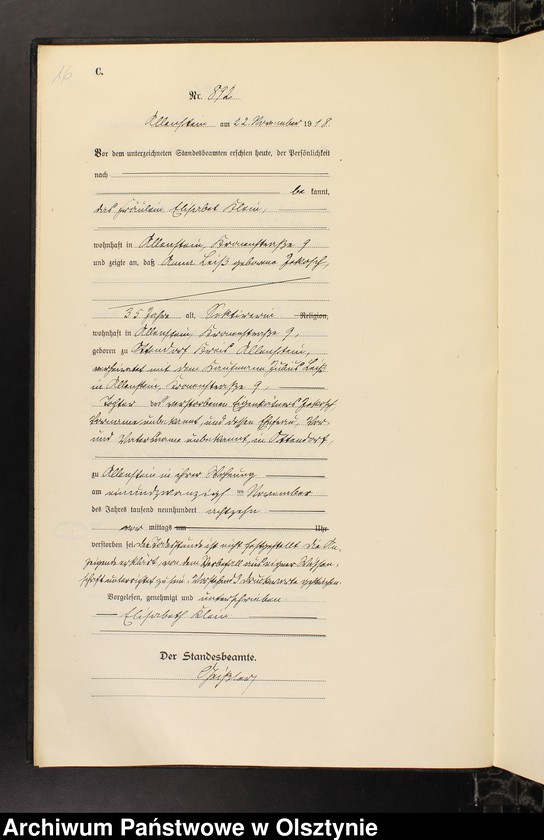 16
C.
Nr. 892
Allenstein am 22. November 1918.
Vor dem unterzeichneten Standesbeamten erschien heute, der Persönlichkeit
nach
be kannt,
das Fräulein Elisabet Klein,
wohnhaft in Allenstein, Kronenstraße 9
und zeigte an, daß Anna Leiß geborene
35 Jahre alt, Religion,
wohnhaft in Allenstein, Kronenstraße 9,
geboren zu Ottendorf Kreis Allenstein,
verheiratet mit dem Kaufmann Julius Leiß
in Allenstein, Kronenstraße 9,
Tochter des verstorbenen Eigenkätners
Vorname unbekannt, und dessen Ehefrau, Vor-
und Vatersname unbekannt, in Ottendorf
zu Allenstein in ihrer Wohnung
am einundzwanzigsten November
des Jahres tausend neunhundert achtzehn
vor mittags um Uhr
verstorben sei. Die Todesstunde ist nicht festgestellt. Die An-
zeigende erklärt, von dem Sterbefall aus eigner Wissen-
schaft unterrichtet zu sein. Vorstehend Druckworte gestrichen.
Vorgelesen, genehmigt und unterschrieben
Elisabeth Klein
Der Standesbeamte.
Archiwum Państwowe w Olsztynie